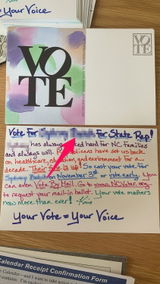 = Your Voice
VO
TE
Vote For Sydney For State Rep!
has always worked hard for NC families
and always will. Republicans have set us back
on healthcare, education, and environment for a
decade. Their time is up! So cast your vote for
Sydney on November 3rd or vote early. You
can even Vote By Mail. Go to
to request your mail-in ballot. Your vote matters
now more than ever!
Your Vote = Your Voice
Calendar Receipt Confirmation Form